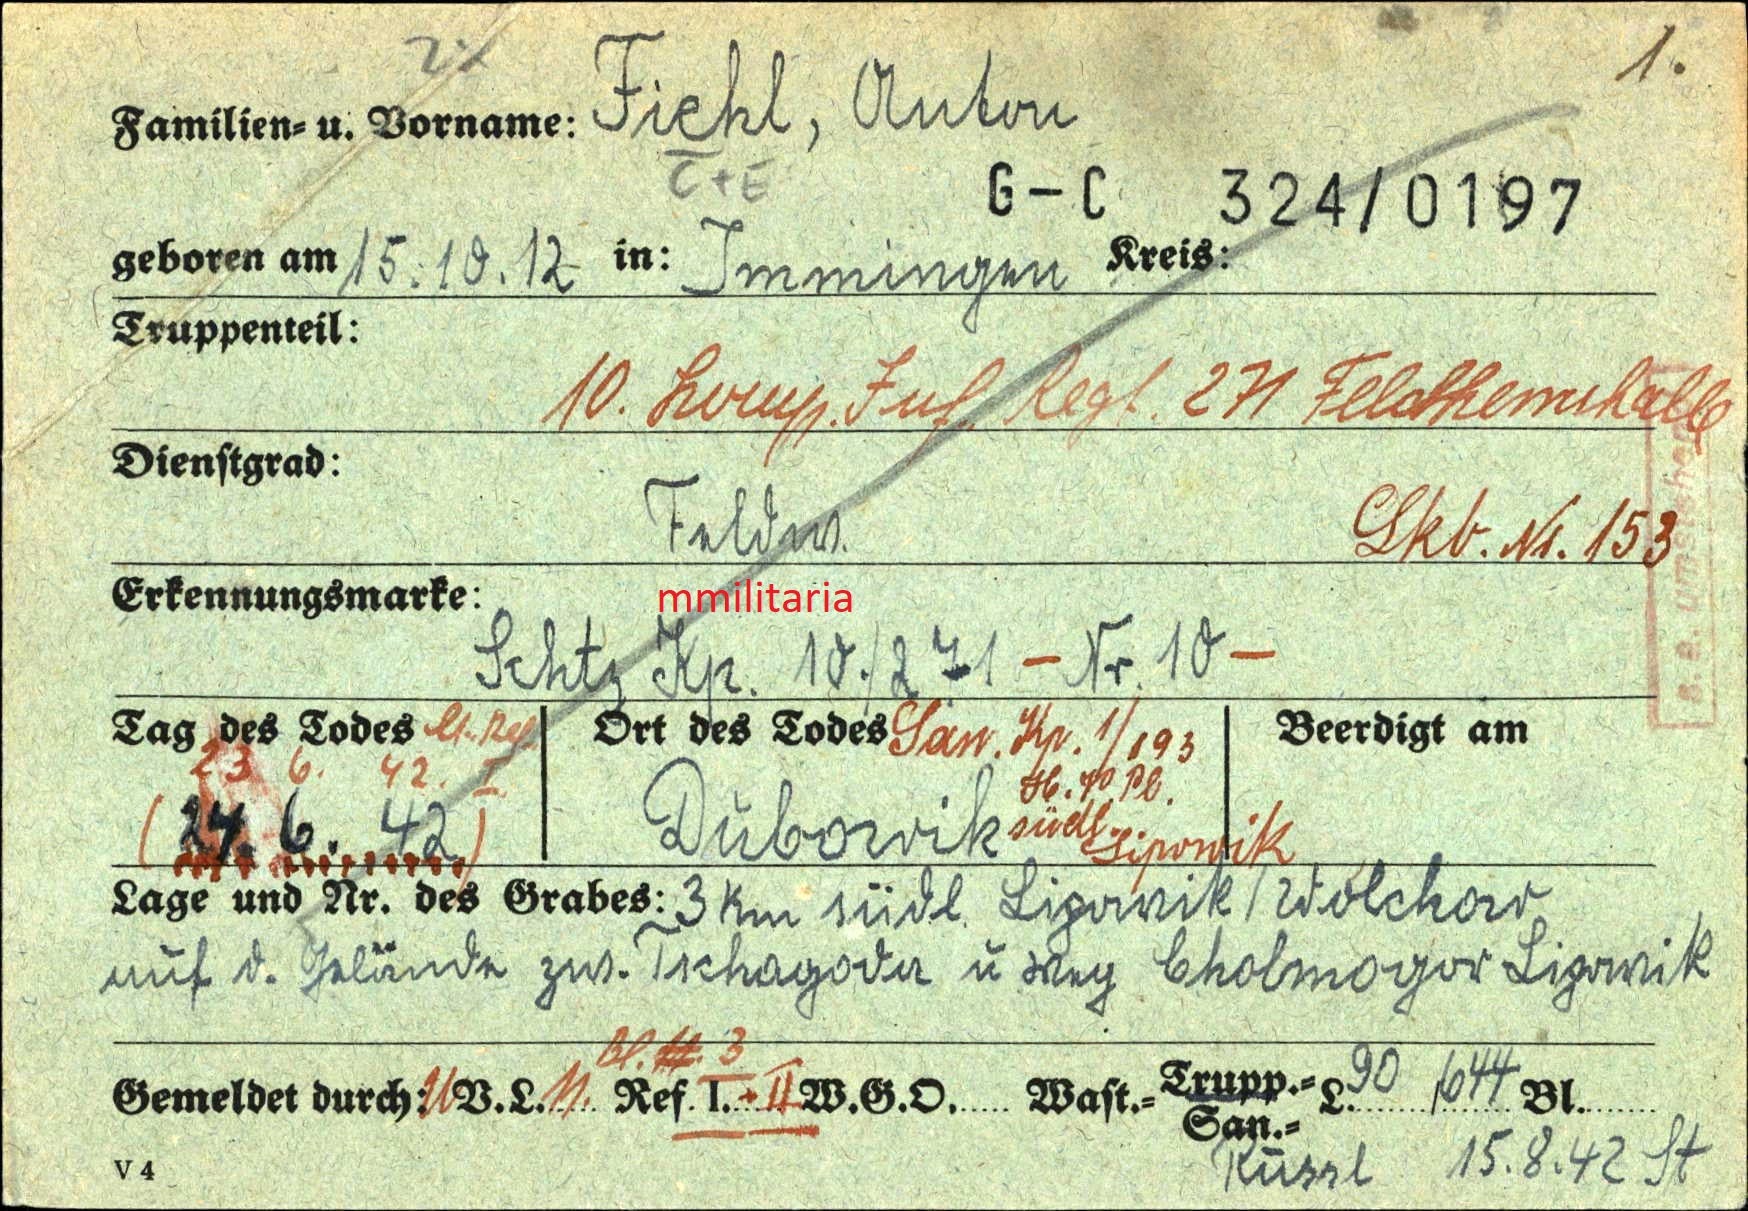 1.
Familien= u. Vorname: Fichl, Anton
C + E
G – C 324/0197
geboren am 15.10.12 in: Immingen Kreis:
Truppenteil:
10. Komp. Inf. Regt. 271 Feldhernhalle
Dienstgrad:
Feldw. Lkb. Nr. 153
Erkennungsmarke:
mmilitaria
Schtz Kp. 10./271 – Nr. 10 –
Tag des Todes Ort des Todes San. Kp. 1/193 Beerdigt am
23 6. 42. I
(24. 6. 42) Dubowik südl. Lipowik
Lage und Nr. des Grabes: 3 km südl. Lipowik / Wolchow
auf d. Gelände zw. Tschagoda u Weg Cholmogor Lipowik
Bl. 3
Gemeldet durch: V.L. Ref. I. + II W.G.O. Wast.= Trupp.= San.= L. 90 / 644 Bl.
15.8.42 St
V 4